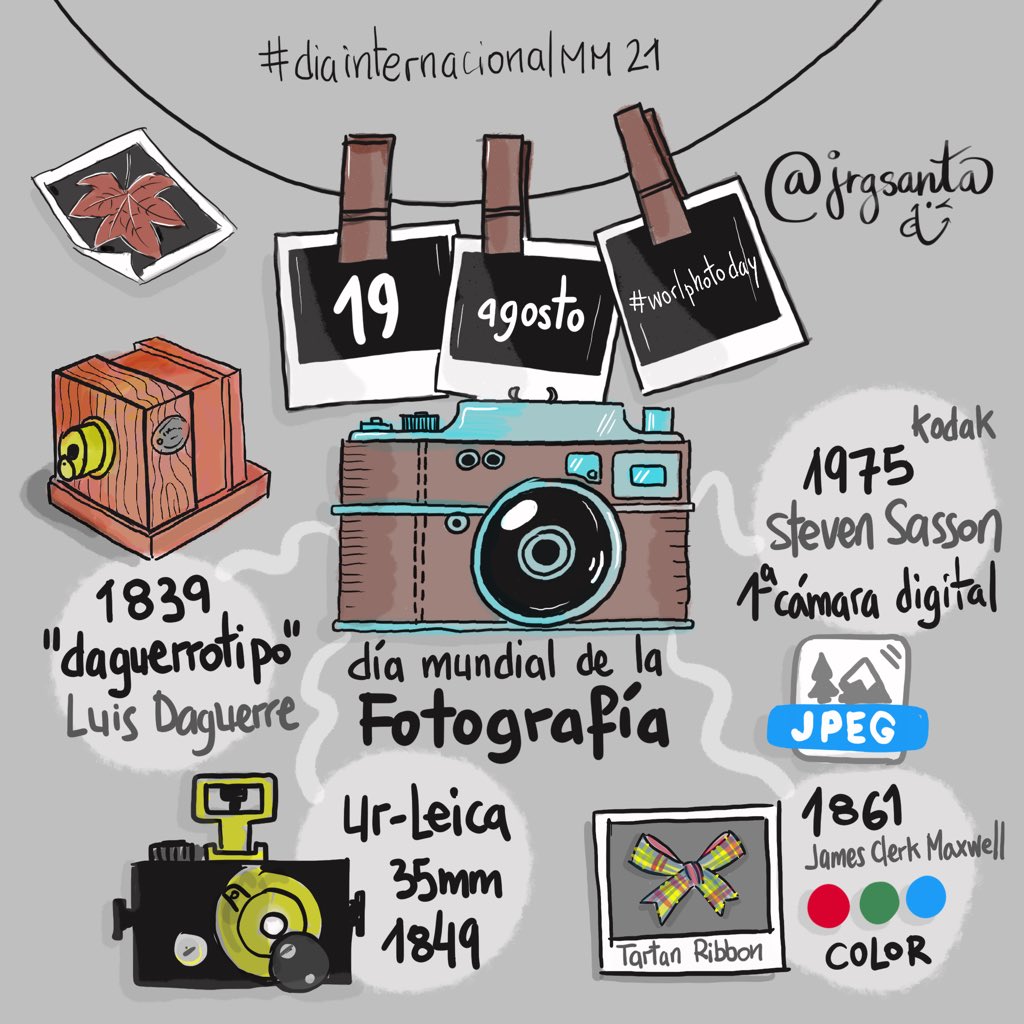 #diainternacionalMM21
@jrgsanta
19
agosto
#worlphotoday
kodak
1975
Steven Sasson
1ª cámara digital
1839
"daguerrotipo"
Luis Daguerre
día mundial de la
Fotografía
JPEG
Ur-Leica
35mm
1849
1861
James Clerk Maxwell
COLOR
Tartan Ribbon